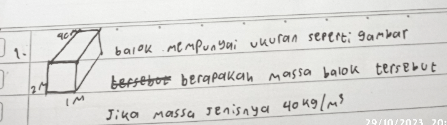 1.
40m
balok mempunyai ukuran seperti gambar
2M
tersebut berapakah massa balok tersebut
1M
Jika massa Jenisnya 40kg/m³
29/10/2023 20: